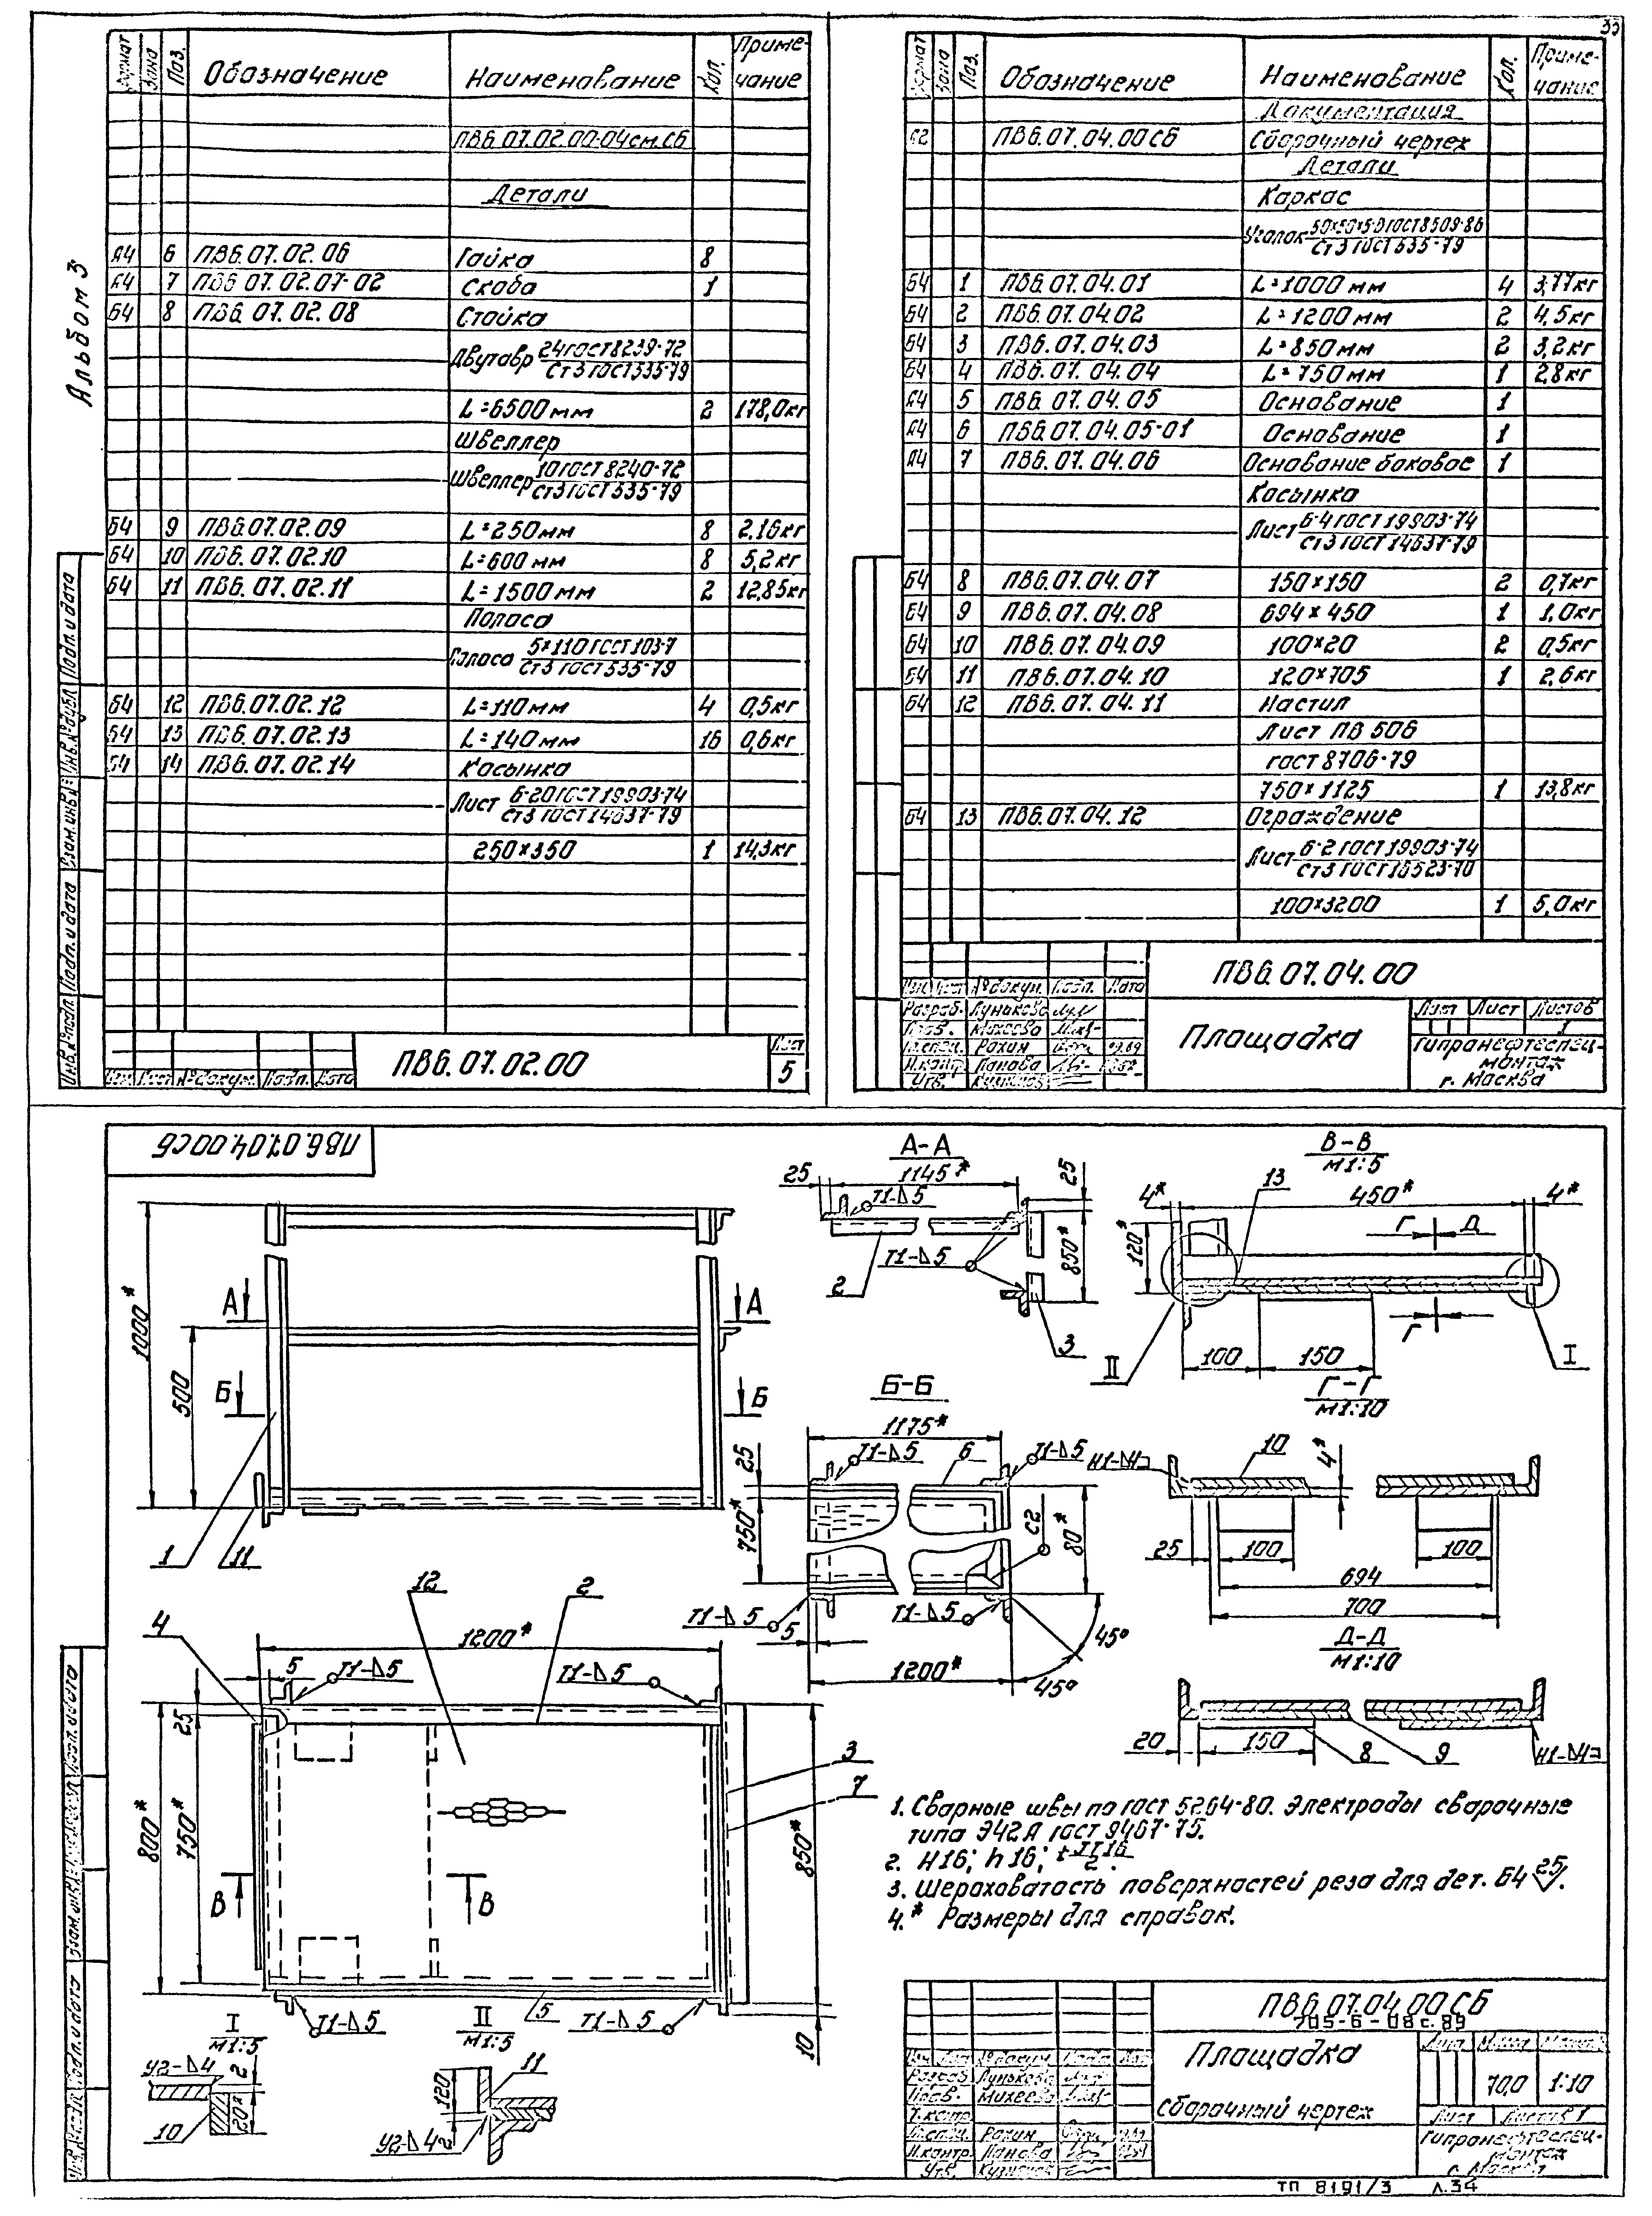 33
Альбом 3
Формат Зона Поз. Обозначение Наименование Кол. Приме-
чание
ПВ6.07.02.00-04см.СБ
Детали
А4 6 ПВ6.07.02.06 Гайка 8
А4 7 ПВ6 07.02.07-02 Скоба 1
Б4 8 ПВ6.07.02.08 Стойка
Двутавр 24 ГОСТ 8239-72
Ст3 ГОСТ 535-79
L=6500мм 2 178,0кг
Швеллер
Швеллер 10 ГОСТ 8240-72
Ст3 ГОСТ 535-79
Б4 9 ПВ6.07.02.09 L=250мм 8 2,16кг
Б4 10 ПВ6.07.02.10 L=600мм 8 5,2кг
Б4 11 ПВ6.07.02.11 L=1500мм 2 12,85кг
Полоса
Полоса 5×110 ГОСТ 103-7
Ст3 ГОСТ 535-79
Б4 12 ПВ6.07.02.12 L=110мм 4 0,5кг
Б4 13 ПВ6.07.02.13 L=140мм 16 0,6кг
Б4 14 ПВ6.07.02.14 Косынка
Лист Б-20 ГОСТ 19903-74
Ст3 ГОСТ 14637-79
250×350 1 14,3кг
Инв.№подл. Подп. и дата Взам.инв.№ Инв.№дубл. Подп. и дата
Изм. Лист №докум. Подп. Дата
ПВ6.07.02.00
Лист
5
Формат Зона Поз. Обозначение Наименование Кол. Приме-
чание
Документация
А2 ПВ6.07.04.00СБ Сборочный чертеж
Детали
Каркас
Уголок 50×50×5-В ГОСТ 8509-86
Ст3 ГОСТ 535-79
Б4 1 ПВ6.07.04.01 L=1000мм 4 3,77кг
Б4 2 ПВ6.07.04.02 L=1200мм 2 4,5кг
Б4 3 ПВ6.07.04.03 L=850мм 2 3,2кг
Б4 4 ПВ6.07.04.04 L=750мм 1 2,8кг
А4 5 ПВ6.07.04.05 Основание 1
А4 6 ПВ6.07.04.05-01 Основание 1
А4 7 ПВ6.07.04.06 Основание боковое 1
Косынка
Лист Б-4 ГОСТ 19903-74
Ст3 ГОСТ 14637-79
Б4 8 ПВ6.07.04.07 150×150 2 0,7кг
Б4 9 ПВ6.07.04.08 694×450 1 1,0кг
Б4 10 ПВ6.07.04.09 100×20 2 0,5кг
Б4 11 ПВ6.07.04.10 120×705 1 2,6кг
Б4 12 ПВ6.07.04.11 Настил
Лист ПВ 506
гост 8706-79
750×1125 1 13,8кг
Б4 13 ПВ6.07.04.12 Ограждение
Лист Б-2 ГОСТ 19903-74
Ст3 ГОСТ 16523-70
100×3200 1 5,0кг
ПВ6.07.04.00
Изм Лист №докум. Подп. Дата
Разраб. Лунькова
Пров. Михеева
Гл.спец. Рохин
Н.контр. Панова
Утв. Кузнецов
Площадка
Лит Лист Листов
1
Гипронефтеспец-
монтаж
г. Москва
ПВ6.07.04.00СБ
1000*
500
А А
Б Б
1 11
А-А
25 1145* 25
Т1-△5
Т1-△5
850*
2 3
В-В
М1:5
4* 13 450* 4*
120*
Г Д
Г
II 100 150 I
Б-Б
1175*
Т1-△5 6 Т1-△5
25
750*
С2
80*
Т1-△5 Т1-△5
5
1200*
45°
45°
Г-Г
М1:10
Н1-△4 10 4*
25 100 100
694
700
Д-Д
М1:10
20 150 8 9 Н1-△4
4 12 2
1200*
5 Т1-△5 Т1-△5
25
800*
750*
3
7
850*
В В
Т1-△5 5 Т1-△5
10
I
М1:5
У2-△4 2
20*
10
II
М1:5
11
120
У2-△4 2
1. Сварные швы по гост 5264-80. Электроды сварочные
типа Э42А гост 9467-75.
2. Н16; h16; ± IT16/2.
3. Шероховатость поверхностей реза для дет. Б4 25.
4.* Размеры для справок.
ПВ6.07.04.00СБ
705-6-08с.89
Площадка
сборочный чертеж
Лит. Масса Масштаб
70,0 1:10
Лист Листов 1
Гипронефтеспец-
монтаж
г. Москва
Разраб Лунькова
Пров. Михеева
Т.контр.
Гл.спец. Рохин
Н.контр. Панова
Утв. Кузнецов
ТП 8191/3 л.34